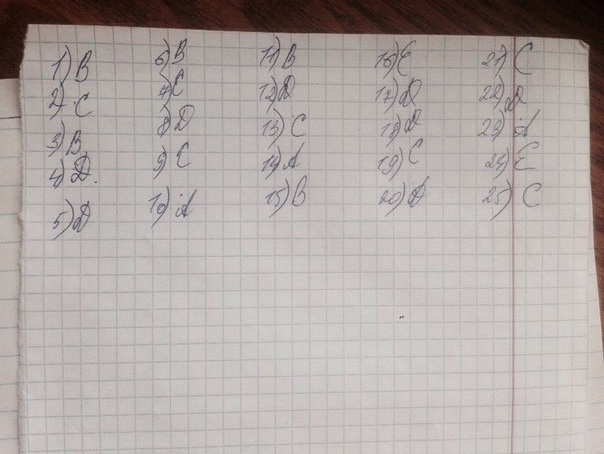 1) B
2) C
3) B
4) D.
5) D
6) B
7) C
8) D
9) C
10) A
11) B
12) D
13) C
14) A
15) B
16) E
17) D
18) D
19) C
20) D
21) C
22) D
23) A
24) E
25) C